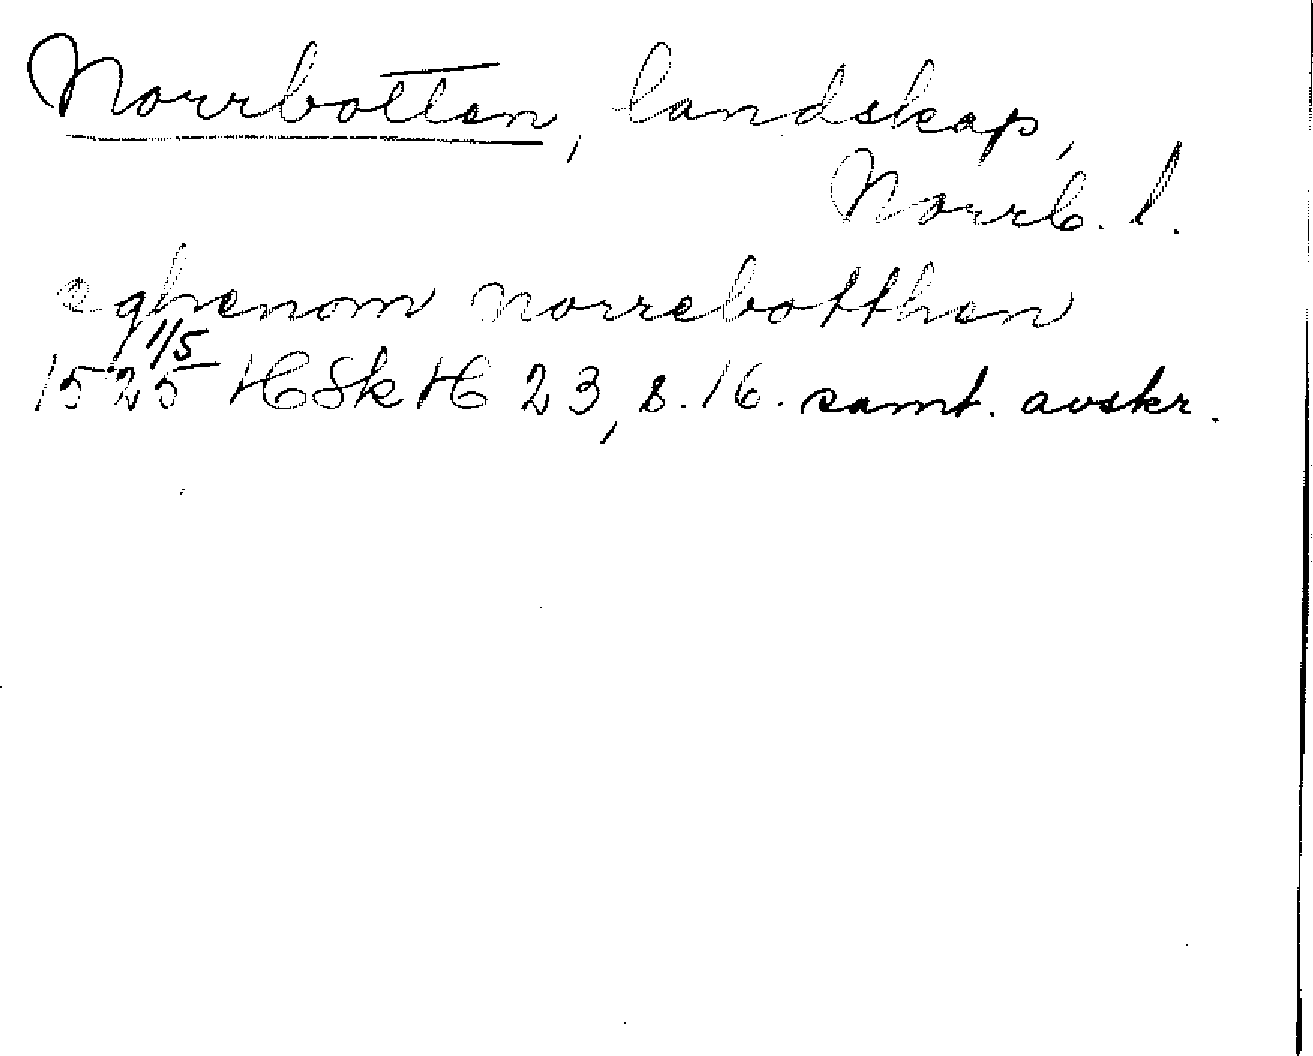 Norrbotten, landskap,
Norrb. l.
eghenom norrebotthen
1525 1/5 HSkH 23, s. 16. samt. avskr.